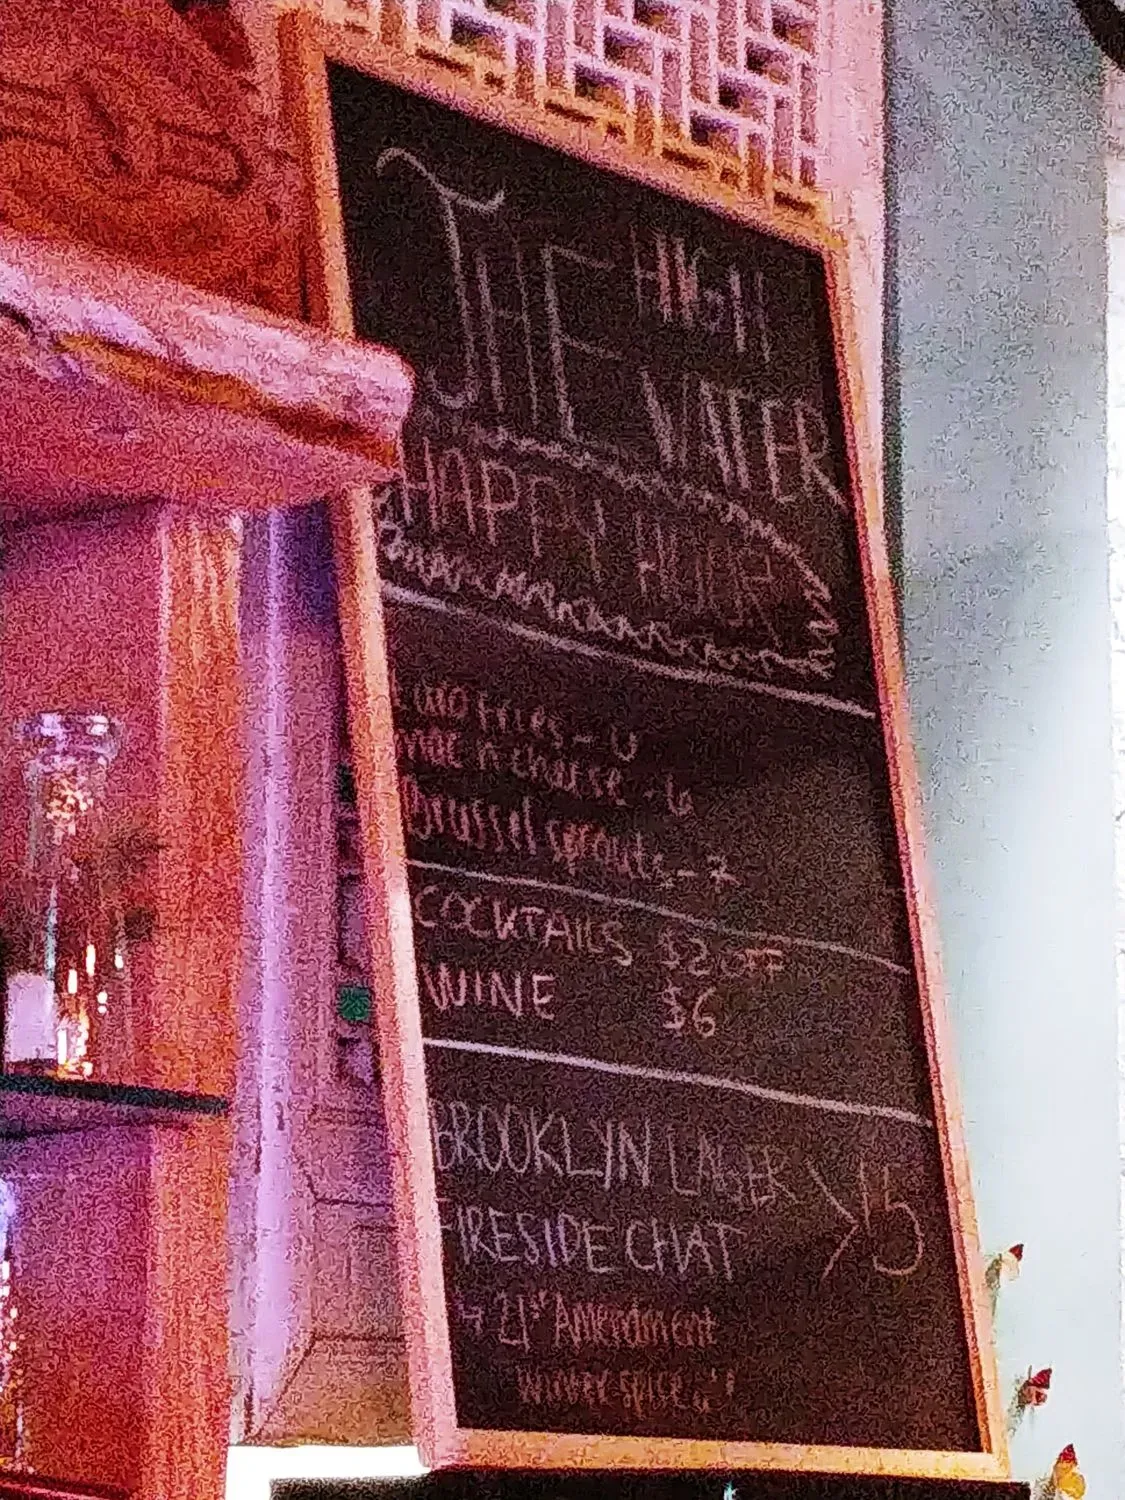 THE HIGH
WATER
HAPPY HOUR
Fries -
mac n cheese - 6
Brussel sprouts - 7
COCKTAILS $2 OFF
WINE $6
BROOKLYN LAGER
FIRESIDE CHAT > $5
↳ 21st Amendment
winter spice